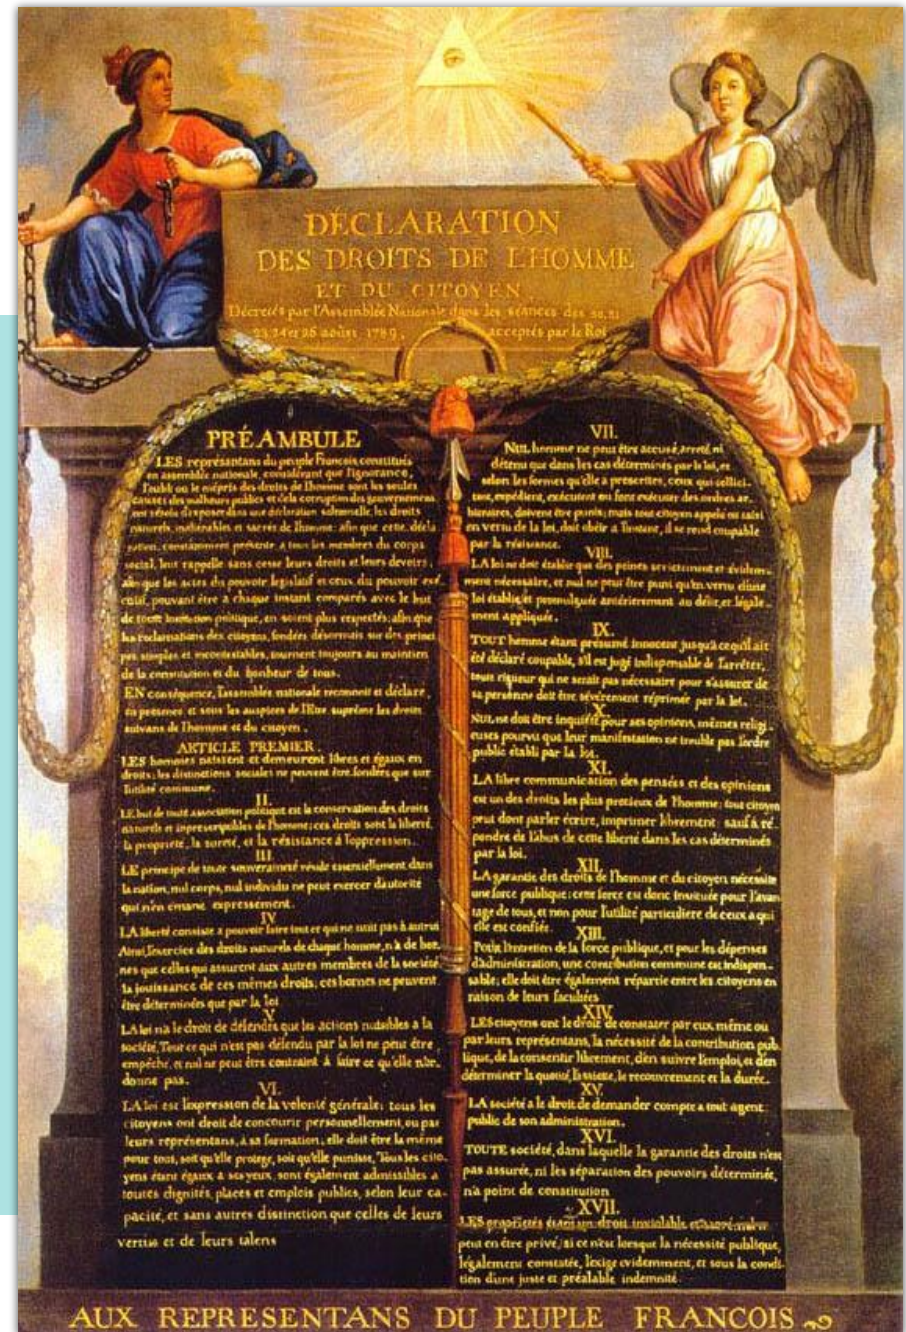 DÉCLARATION
DES DROITS DE L'HOMME
ET DU CITOYEN
Décretés par l'Assemblé Nationale dans les séances des 20, 21
23, 24 et 26 août 1789, acceptés par le Roi
PRÉAMBULE
LES représentans du peuple Francois, constitués
en assemblée nationale, considérant que l'ignorance,
l'oubli ou le mépris des droits de l'homme sont les seules
causes des malheurs publics et de la corruption des gouvernemens
ont résolu d'exposer dans une déclaration solemnelle, les droits
naturels, inaliénables et sacrés de l'homme: afin que cette décla
ration, constamment présente a tous les membres du corps
social, leur rappelle sans cesse leurs droits et leurs devoirs;
afin que les actes du pouvoir législatif et ceux du pouvoir exé
cutif, pouvant être a chaque instant comparés avec le but
de toute institution politique, en soient plus respectés; afin que
les réclamations des citoyens, fondées désormais sur des princi
pes simples et incontestables, tournent toujours au maintien
de la constitution et du bonheur de tous.
EN conséquence, l'assemblée nationale reconnoit et déclare,
en presence et sous les auspices de l'Etre suprême les droits
suivans de l'homme et du citoyen.
ARTICLE PREMIER.
LES hommes naissent et demeurent libres et égaux en
droits; les distinctions sociales ne peuvent être fondées que sur
l'utilité commune.
II.
LE but de toute association politique est la conservation des droits
naturels et inprescriptibles de l'homme; ces droits sont la liberté,
la propriété, la sureté, et la résistance à l'oppression.
III.
LE principe de toute souveraineté réside essentiellement dans
la nation, nul corps, nul individu ne peut exercer d'autorité
qui n'en émane expressement.
IV
LA liberté consiste a pouvoir faire tout ce qui ne nuit pas à autrui
Ainsi, l'exercice des droits naturels de chaque homme, n'a de bor
nes que celles qui assurent aux autres membres de la société
la jouissance de ces mêmes droits; ces bornes ne peuvent
être déterminées que par la loi
V
LA loi n'a le droit de défendre que les actions nuisibles a la
société. Tout ce qui n'est pas défendu par la loi ne peut être
empêché, et nul ne peut être contraint à faire ce qu'elle n'or-
donne pas.
VI.
LA loi est l'expression de la volonté générale; tous les
citoyens ont droit de concourir personnellement, ou par
leurs représentans, à sa formation; elle doit être la même
pour tous, soit qu'elle protege, soit qu'elle punisse, Tous les cito
yens étant égaux à ses yeux, sont également admissibles a
toutes dignités, places et emplois publics, selon leur ca-
pacité, et sans autres distinction que celles de leurs
vertus et de leurs talens
VII.
NUL homme ne peut être accusé, arreté, ni
détenu que dans les cas déterminés par la loi, et
selon les formes qu'elle a prescrites, ceux qui sollici
tent, expédient, exécutent ou font exécuter des ordres ar
bitraires, doivent être punis; mais tout citoyen appelé ou saisi
en vertu de la loi, doit obéir a l'instant, il se rend coupable
par la résistance.
VIII.
LA loi ne doit établir que des peines strictement et évidem-
ment nécessaire, et nul ne peut être puni qu'en vertu d'une
loi établie et promulguée antérierement au délit, et légale-
ment appliquée.
IX.
TOUT homme étant présumé innocent jusqu'à ce qu'il ait
été déclaré coupable, s'il est jugé indispensable de l'arrêter,
toute rigueur qui ne serait pas nécessaire pour s'assurer de
sa personne doit être sévèrement réprimée par la loi.
X
NUL ne doit être inquiété pour ses opinions, mêmes religi
euses pourvu que leur manifestation ne trouble pas l'ordre
public établi par la loi.
XI.
LA libre communication des pensées et des opinions
est un des droits les plus precieux de l'homme; tout citoyen
peut dont parler écrire, imprimer librement: sauf à ré
pondre de l'abus de cette liberté dans les cas déterminés
par la loi.
XII.
LA garantie des droits de l'homme et du citoyen nécessite
une force publique; cette force est donc instituée pour l'avan
tage de tous, et non pour l'utilité particuliere de ceux a qui
elle est confiée.
XIII.
POUR l'entretien de la force publique, et pour les dépenses
d'administration, une contribution commune est indispen-
sable; elle doit être également répartie entre les citoyens en
raison de leurs facultées
XIV.
LES citoyens ont le droit de constater par eux même ou
par leurs représentans, la nécessité de la contribution pub
lique, de la consentir librement, d'en suivre l'emploi, et d'en
déterminer la quotité, l'assiette, le recouvrement et la durée.
XV.
LA société a le droit de demander compte a tout agent
public de son administration.
XVI.
TOUTE société, dans laquelle la garantie des droits n'est
pas assurée, ni les séparation des pouvoirs déterminée,
n'a point de constitution
XVII.
LES propriétés étant un droit inviolable et sacré, nul ne
peut en être privé, si ce n'est lorsque la nécessité publique,
légalement constatée, l'exige evidemment, et sous la condi
tion d'une juste et préalable indemnité.
AUX REPRESENTANS DU PEUPLE FRANCOIS